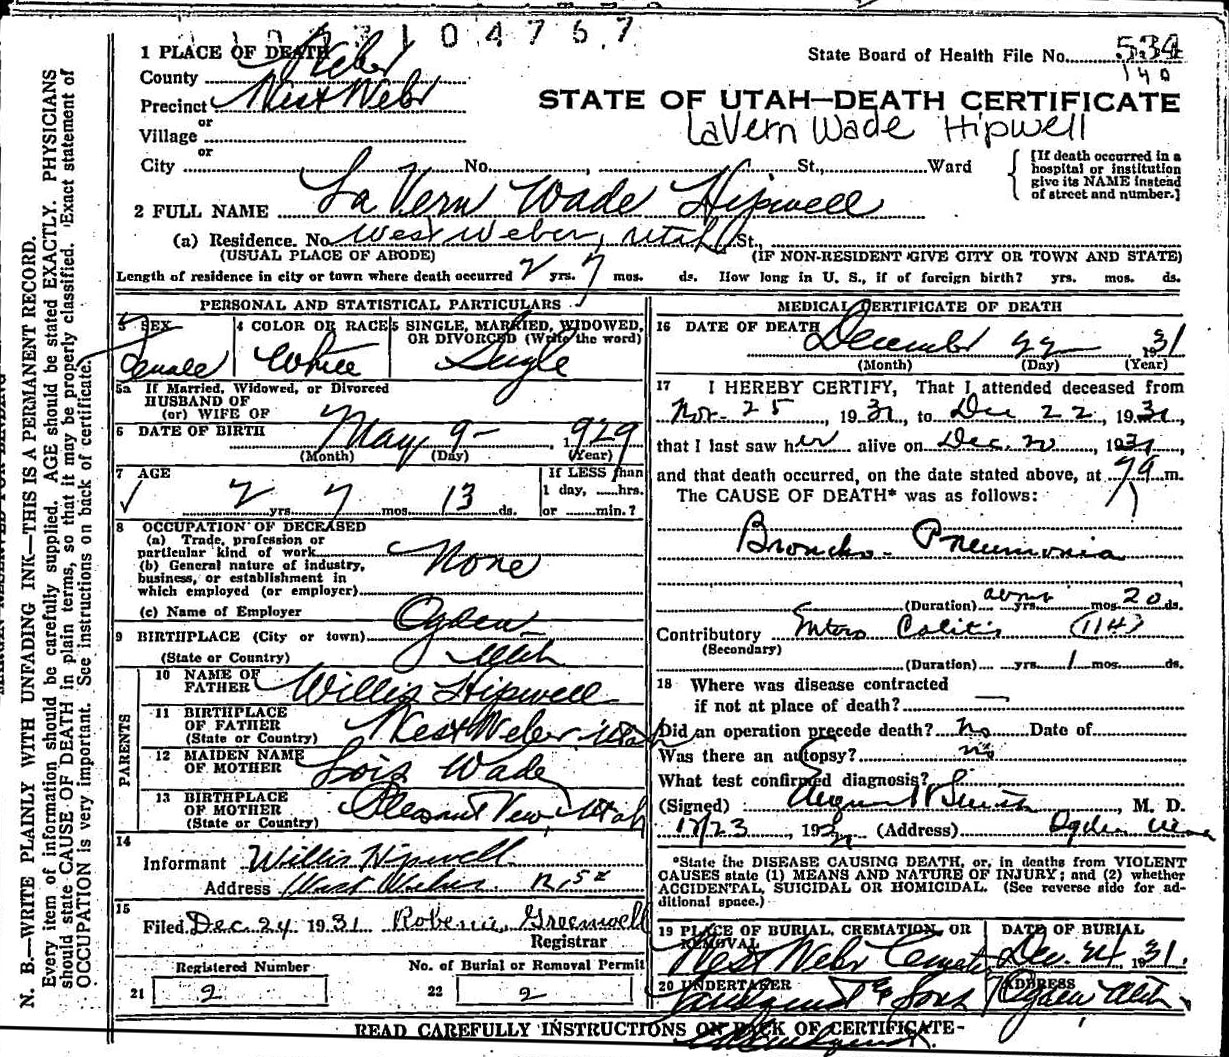 3104767
1 PLACE OF DEATH
State Board of Health File No. 534
140
County Weber
Precinct West Weber
STATE OF UTAH—DEATH CERTIFICATE
or
LaVern Wade Hipwell
Village
or
City No. , St., Ward
[If death occurred in a hospital or institution give its NAME instead of street and number.]
2 FULL NAME La Vern Wade Hipwell
(a) Residence. No. West Weber, Utah St.,
(USUAL PLACE OF ABODE) (IF NON-RESIDENT GIVE CITY OR TOWN AND STATE)
Length of residence in city or town where death occurred 2 yrs. 7 mos. ds. How long in U. S., if of foreign birth? yrs. mos. ds.
PERSONAL AND STATISTICAL PARTICULARS
3 SEX
Female
4 COLOR OR RACE
White
5 SINGLE, MARRIED, WIDOWED,
OR DIVORCED (Write the word)
Single
5a If Married, Widowed, or Divorced
HUSBAND OF
(or) WIFE OF
6 DATE OF BIRTH May 9- , 1929
(Month) (Day) (Year)
7 AGE
2 yrs. 7 mos. 13 ds.
If LESS than
1 day, ......hrs.
or ......min.?
8 OCCUPATION OF DECEASED
(a) Trade, profession or
particular kind of work None
(b) General nature of industry,
business, or establishment in
which employed (or employer)
(c) Name of Employer
9 BIRTHPLACE (City or town) Ogden
(State or Country) Utah
PARENTS
10 NAME OF
FATHER Willis Hipwell
11 BIRTHPLACE
OF FATHER
(State or Country) West Weber Utah
12 MAIDEN NAME
OF MOTHER Lois Wade
13 BIRTHPLACE
OF MOTHER
(State or Country) Pleasant View, Utah
14
Informant Willis Hipwell
Address West Weber
15
Filed Dec 24 1931 Greenwell
Registrar
Registered Number
21 2
No. of Burial or Removal Permit
22 2
MEDICAL CERTIFICATE OF DEATH
16 DATE OF DEATH December 22 1931
(Month) (Day) (Year)
17 I HEREBY CERTIFY, That I attended deceased from
Nov. 25, 1931, to Dec 22, 1931,
that I last saw her alive on Dec. 20, 1931,
and that death occurred, on the date stated above, at 7 a m.
The CAUSE OF DEATH* was as follows:
Broncho-Pneumonia
(Duration) about yrs. mos. 20 ds.
Contributory Entero Colitis (114)
(Secondary)
(Duration) yrs. 1 mos. ds.
18 Where was disease contracted
if not at place of death?
Did an operation precede death? No Date of
Was there an autopsy? no
What test confirmed diagnosis?
(Signed) , M. D.
12/23, 1931 (Address) Ogden
*State the DISEASE CAUSING DEATH, or, in deaths from VIOLENT
CAUSES state (1) MEANS AND NATURE OF INJURY; and (2) whether
ACCIDENTAL, SUICIDAL OR HOMICIDAL. (See reverse side for ad-
ditional space.)
19 PLACE OF BURIAL, CREMATION, OR
REMOVAL
West Weber Cemetery
DATE OF BURIAL
Dec. 24 1931.
20 UNDERTAKER
& Sons
ADDRESS
Ogden Utah
READ CAREFULLY INSTRUCTIONS ON BACK OF CERTIFICATE-
N. B.—WRITE PLAINLY WITH UNFADING INK—THIS IS A PERMANENT RECORD.
Every item of information should be carefully supplied. AGE should be stated EXACTLY. PHYSICIANS
should state CAUSE OF DEATH in plain terms, so that it may be properly classified. Exact statement of
OCCUPATION is very important. See instructions on back of certificate.